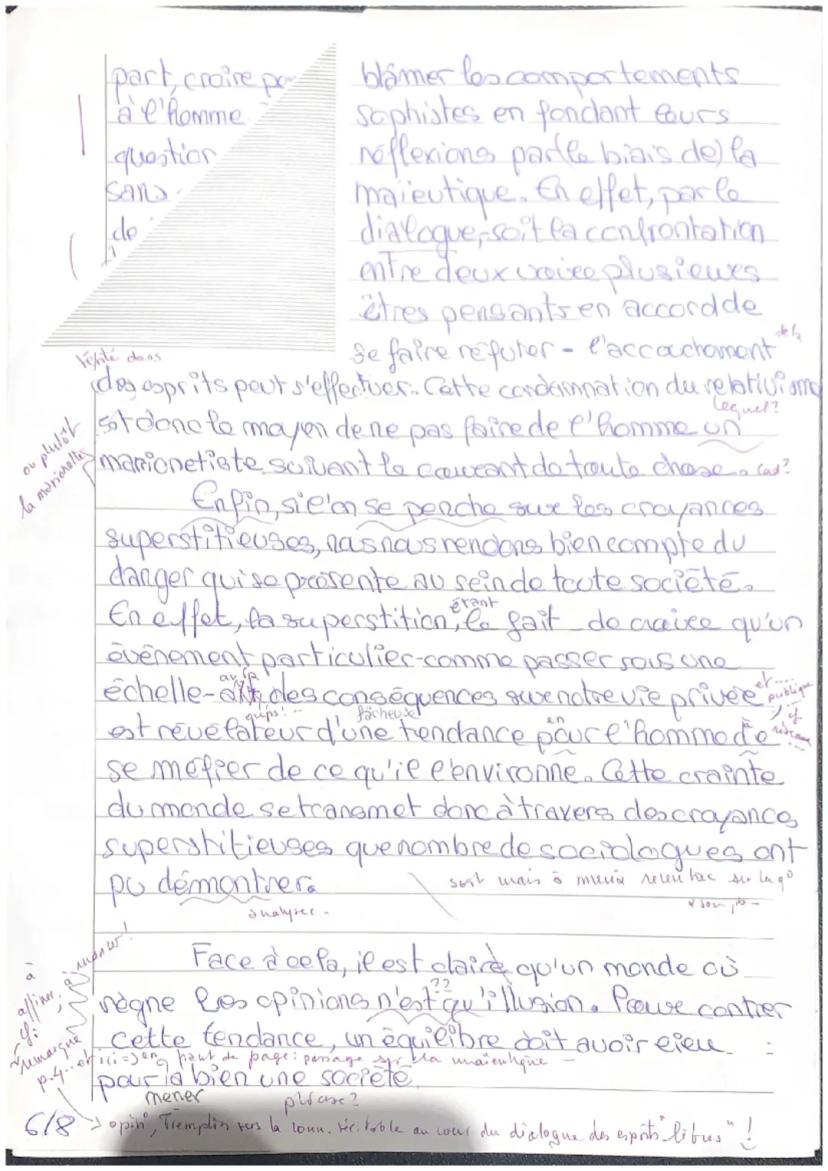 part, croire pa
à l'homme
question
sans
de
blâmer les comportements
sophistes en fondant leurs
réflexions par (le biais de) la
maïeutique. En effet, par le
dialogue, soit la confrontation
entre deux voire plusieurs
êtres pensants en accord de
se faire réfuter - l'accouchement
de la
Vérité dans
des esprits peut s'effectuer. Cette condamnation du relativisme
lequel?
est donc le moyen de ne pas faire de l'homme un
ou plutôt
la marionnette
marionettiste suivant le courant de toute chose. Cad?
Enfin, si l'on se penche sur les croyances
superstitieuses, nous nous rendons bien compte du
danger qui se présente au sein de toute société.
étant
En effet, la superstition, le fait de croire qu'un
événement particulier - comme passer sous une
avoir
échelle - des conséquences sur notre vie privée
et... publique
fâcheuse
en
est révélateur d'une tendance pour l'homme de
se méfier de ce qu'il l'environne. Cette crainte
du monde se transmet donc à travers des croyances
superstitieuses que nombre de sociologues ont
pu démontrer.
soit mais à mieux sur la q°
analyser -
Face à cela, il est claire qu'un monde où
??
règne les opinions n'est qu'illusion. Pour contrer
à affiner,
cf:
remarque
p.4..
cette tendance, un équilibre doit avoir lieu
et ici => en haut de page: passage sur la maïeutique -
pour la bien une société
mener
phrase?
6/8
-> opin°, Tremplin vers la conn. véritable au cœur du dialogue des esprits "libres"!